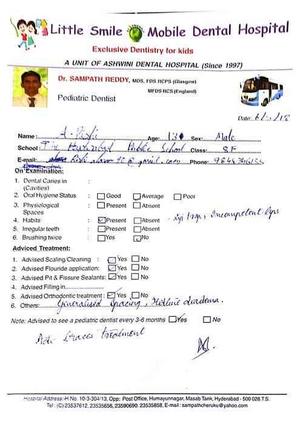 Little Smile Mobile Dental Hospital
Exclusive Dentistry for kids
A UNIT OF ASHWINI DENTAL HOSPITAL (Since 1997)
Dr. SAMPATH REDDY, MDS, FDS RCPS (Glasgow)
MFDS RCS (England)
Pediatric Dentist
Date:
Name: A. Rishi Age: Sex: Male
School: The Hyderabad Public School Class:
E-mail: Phone:
On Examination:
1 Dental Caries in
(Cavities)
2. Oral Hygiene status : Good Average Poor
3. Physiological : Present Absent
Spaces
4. Habits : Present Absent - Incompetent lips
5. Irregular teeth : Present Absent
6. Brushing twice Yes No
Adviced Treatment:
1 : Advised Scaling Cleaning : Yes No
2. Advised Flouride application: Yes No
3. Advised Pit & Fissure Sealants: Yes No
4. Advised Filling in
5. Advised Orthodontic treatment : Yes No
6. Others: Generalised Spacing, Midline diastema.
Note: Advised to see a pediatric dentist every 3-6 months Yes No
Adv: Braces treatment
Hospital Address: H No. 10-3-304/13, Opp: Post Office, Humayunnagar, Masab Tank, Hyderabad - 500 028 T.S.
Tel: (O) 23537612, 23535656, 23590690, 23535858, E-mail : sampathcheruku@yahoo.com